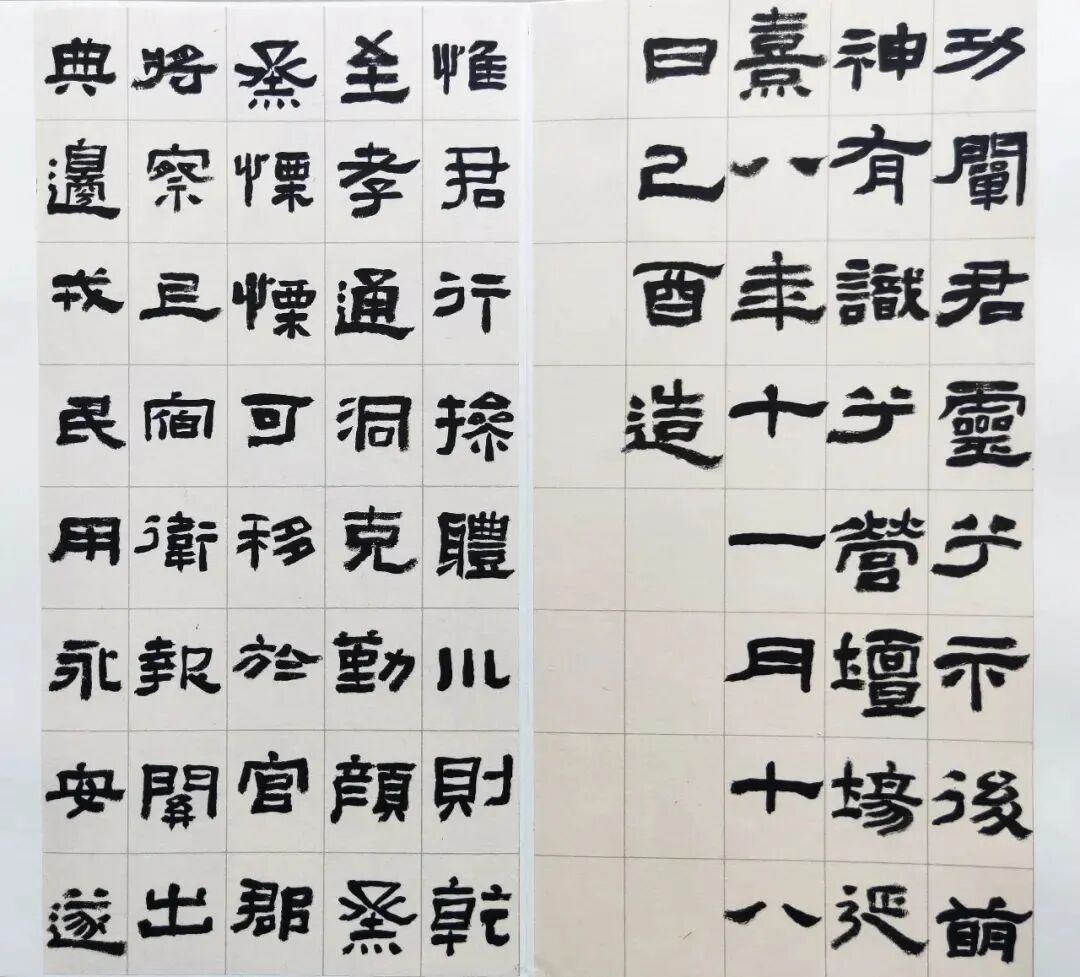 功闡君靈兮示後萌
神有識兮營壇場延
熹八年十一月十八
日己酉造
惟君行操體川則乾
至孝通洞克勤顏烝
烝慄慄可移於官郡
將察且宿衛報關出
典邊戎民用永安遂